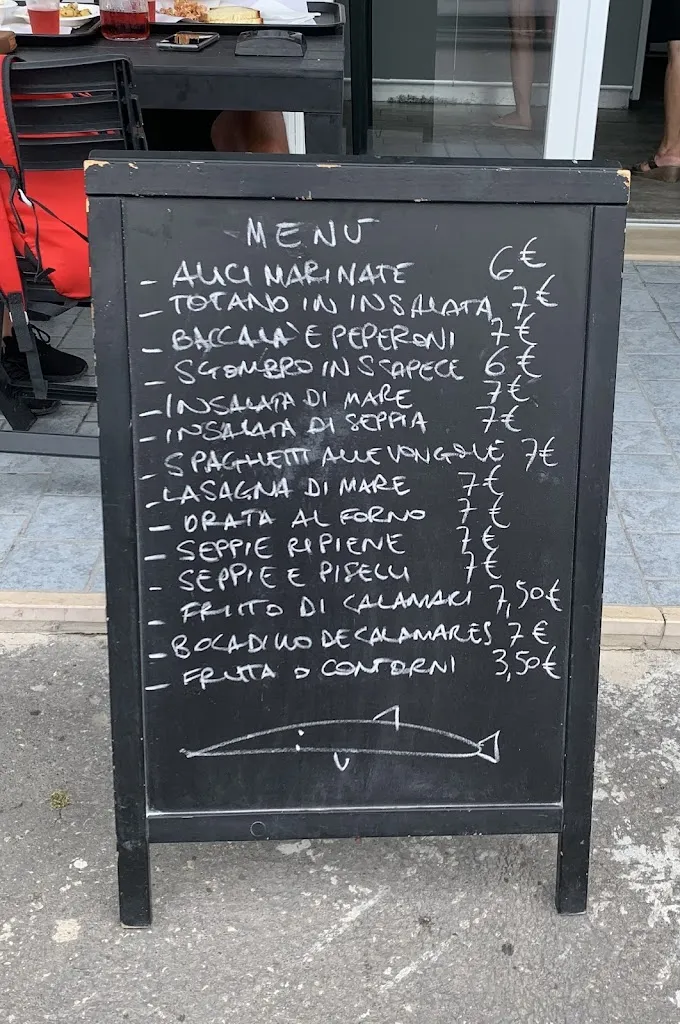 MENÙ
- ALICI MARINATE 6€
- TOTANO IN INSALATA 7€
- BACCALA' E PEPERONI 7€
- SGOMBRO IN SCAPECE 6€
- INSALATA DI MARE 7€
- INSALATA DI SEPPIA 7€
- SPAGHETTI ALLE VONGOLE 7€
- LASAGNA DI MARE 7€
- ORATA AL FORNO 7€
- SEPPIE RIPIENE 7€
- SEPPIE E PISELLI 7€
- FRITTO DI CALAMARI 7,50€
- BOCADILLO DE CALAMARES 7€
- FRUTTA O CONTORNI 3,50€